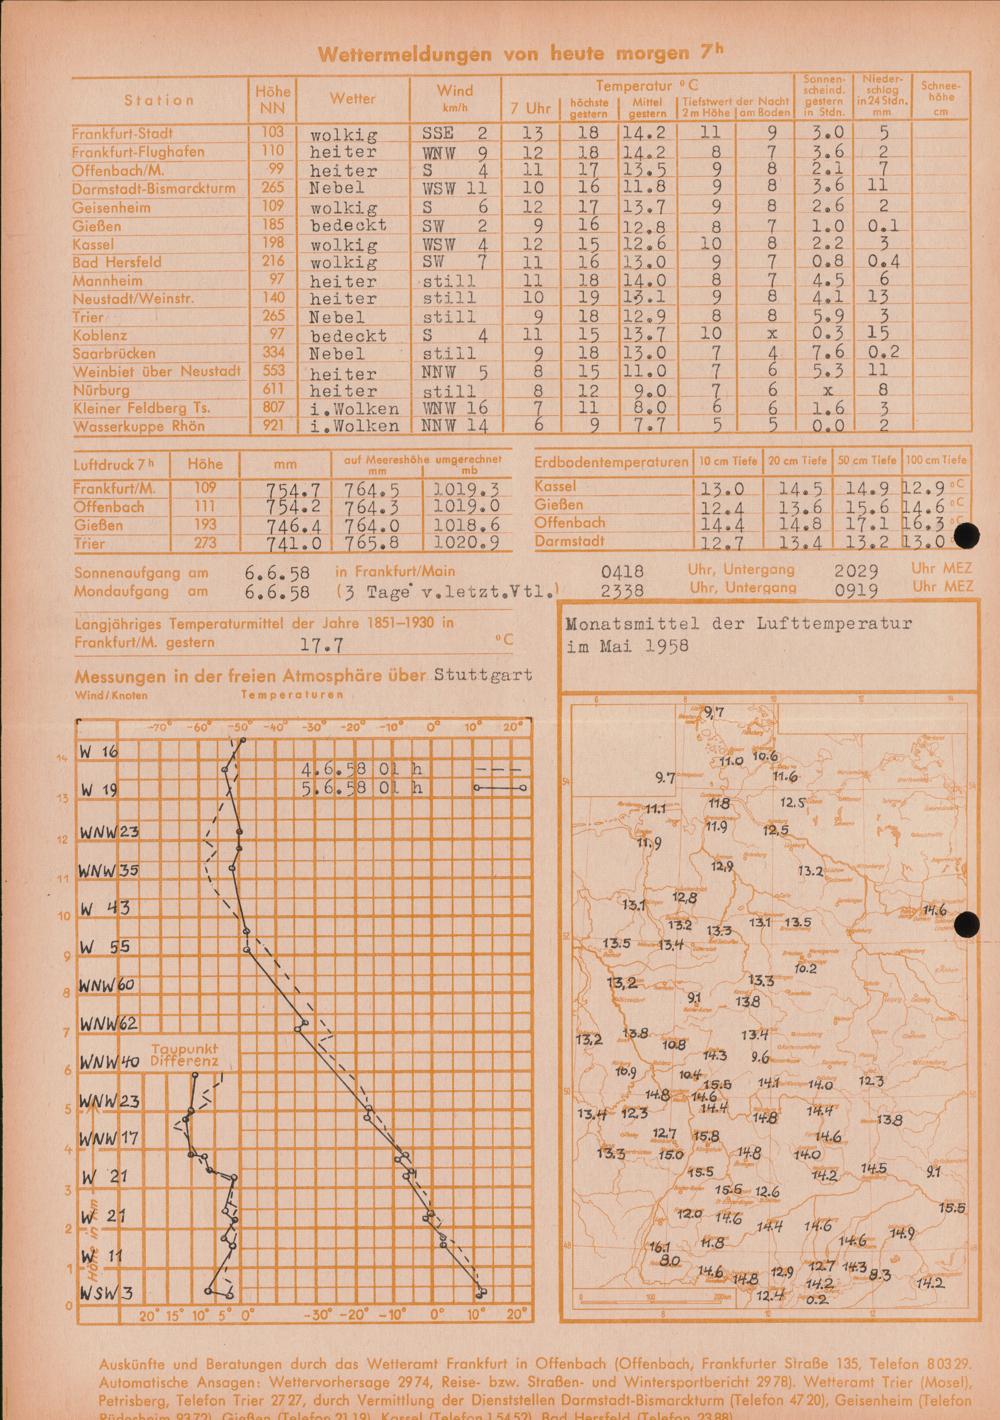 Wettermeldungen von heute morgen 7h
Station Höhe NN Wetter Wind km/h Temperatur °C Sonnenscheind. gestern in Stdn. Niederschlag in 24 Stdn. mm Schneehöhe cm
7 Uhr höchste gestern Mittel gestern Tiefstwert der Nacht 2m Höhe am Boden
Frankfurt-Stadt 103 wolkig SSE 2 13 18 14.2 11 9 3.0 5
Frankfurt-Flughafen 110 heiter WNW 9 12 18 14.2 8 7 3.6 2
Offenbach/M. 99 heiter S 4 11 17 13.5 9 8 2.1 7
Darmstadt-Bismarckturm 265 Nebel WSW 11 10 16 11.8 9 8 3.6 11
Geisenheim 109 wolkig S 6 12 17 13.7 9 8 2.6 2
Gießen 185 bedeckt SW 2 9 16 12.8 8 7 1.0 0.1
Kassel 198 wolkig WSW 4 12 15 12.6 10 8 2.2 3
Bad Hersfeld 216 wolkig SW 7 11 16 13.0 9 7 0.8 0.4
Mannheim 97 heiter still 11 18 14.0 8 7 4.5 6
Neustadt/Weinstr. 140 heiter still 10 19 13.1 9 8 4.1 13
Trier 265 Nebel still 9 18 12.9 8 8 5.9 3
Koblenz 97 bedeckt S 4 11 15 13.7 10 x 0.3 15
Saarbrücken 334 Nebel still 9 18 13.0 7 4 7.6 0.2
Weinbiet über Neustadt 553 heiter NNW 5 8 15 11.0 7 6 5.3 11
Nürburg 611 heiter still 8 12 9.0 7 6 x 8
Kleiner Feldberg Ts. 807 i.Wolken WNW 16 7 11 8.0 6 6 1.6 3
Wasserkuppe Rhön 921 i.Wolken NNW 14 6 9 7.7 5 5 0.0 2
Luftdruck 7h Höhe mm auf Meereshöhe umgerechnet mm mb
Frankfurt/M. 109 754.7 764.5 1019.3
Offenbach 111 754.2 764.3 1019.0
Gießen 193 746.4 764.0 1018.6
Trier 273 741.0 765.8 1020.9
Erdbodentemperaturen 10 cm Tiefe 20 cm Tiefe 50 cm Tiefe 100 cm Tiefe
Kassel 13.0 14.5 14.9 12.9 °C
Gießen 12.4 13.6 15.6 14.6 °C
Offenbach 14.4 14.8 17.1 16.3 °C
Darmstadt 12.7 13.4 13.2 13.0
Sonnenaufgang am 6.6.58 in Frankfurt/Main 0418 Uhr, Untergang 2029 Uhr MEZ
Mondaufgang am 6.6.58 (3 Tage v.letzt.Vtl.) 2338 Uhr, Untergang 0919 Uhr MEZ
Langjähriges Temperaturmittel der Jahre 1851–1930 in
Frankfurt/M. gestern 17.7 °C
Messungen in der freien Atmosphäre über Stuttgart
Wind/Knoten Temperaturen
-70° -60° -50° -40° -30° -20° -10° 0° 10° 20°
W 16
14
4.6.58 01 h
W 19
5.6.58 01 h
13
WNW 23
12
WNW 35
11
W 43
10
W 55
9
WNW 60
8
WNW 62
7
WNW 40
Taupunkt
Differenz
6
WNW 23
5
WNW 17
4
W 21
3
W 21
2
W 11
1
WSW 3
0
Höhe in km
20° 15° 10° 5° 0° -30° -20° -10° 0° 10° 20°
Monatsmittel der Lufttemperatur
im Mai 1958
9.7
11.0 10.6
9.7 11.6
11.1 11.8 12.5
11.9 12.5
11.9
12.9 13.2
13.1 12.8 14.6
13.2 13.3 13.1 13.5
13.5 13.4
10.2
13.2 13.3
9.1 13.8
13.2 13.8 10.8 13.4
14.3 9.6
10.9 10.4 15.5 14.1 14.0 12.3
14.8 14.6
13.4 12.3 14.4 14.8 14.4 13.8
12.7 15.8 14.6
13.3 15.0 14.8 14.0
15.5 14.2 14.5 9.1
15.5 12.6
12.0 14.6 14.4 14.6 15.5
14.6 14.9
16.1 11.8
8.0 14.6 14.8 12.9 12.7 14.3 8.3
14.2 14.2
12.4 0.2
Auskünfte und Beratungen durch das Wetteramt Frankfurt in Offenbach (Offenbach, Frankfurter Straße 135, Telefon 80329.
Automatische Ansagen: Wettervorhersage 2974, Reise- bzw. Straßen- und Wintersportbericht 2978). Wetteramt Trier (Mosel),
Petrisberg, Telefon Trier 2727, durch Vermittlung der Dienststellen Darmstadt-Bismarckturm (Telefon 4720), Geisenheim (Telefon
Rüdesheim 2372), Gießen (Telefon 2119), Kassel (Telefon 15452), Bad Hersfeld (Telefon 2388).